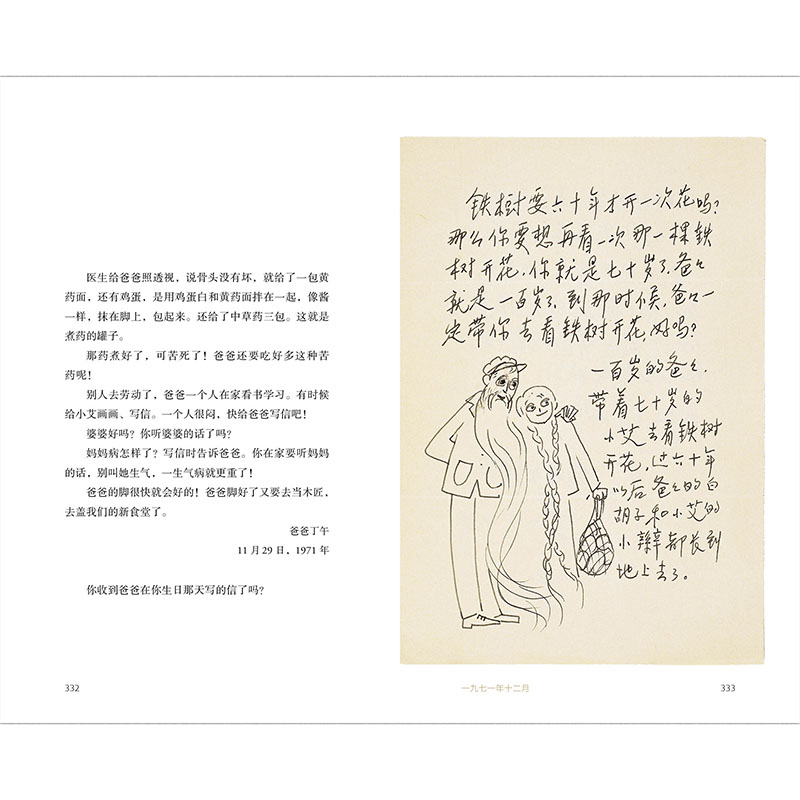 医生给爸爸照透视，说骨头没有坏，就给了一包黄
药面，还有鸡蛋，是用鸡蛋白和黄药面拌在一起，像酱
一样，抹在脚上，包起来。还给了中草药三包。这就是
煮药的罐子。
那药煮好了，可苦死了！爸爸还要吃好多这种苦
药呢！
别人去劳动了，爸爸一个人在家看书学习。有时候
给小艾画画、写信。一个人很闷，快给爸爸写信吧！
婆婆好吗？你听婆婆的话了吗？
妈妈病怎样了？写信时告诉爸爸。你在家要听妈妈
的话，别叫她生气，一生气病就更重了！
爸爸的脚很快就会好的！爸爸脚好了又要去当木匠，
去盖我们的新食堂了。
爸爸丁午
11月29日，1971年
你收到爸爸在你生日那天写的信了吗？
332
铁樹要六十年才开一次花吗？
那么你要想再看一次那一棵铁
树开花，你就是七十岁了，爸々
就是一百岁了，到那时候，爸々一
定带你去看铁树开花，好吗？
一百岁的爸々，
带着七十岁的
小艾去看铁树
开花，过六十年
以后爸々的白
胡子和小艾的
小辫都长到
地上去了。
一九七一年十二月
333